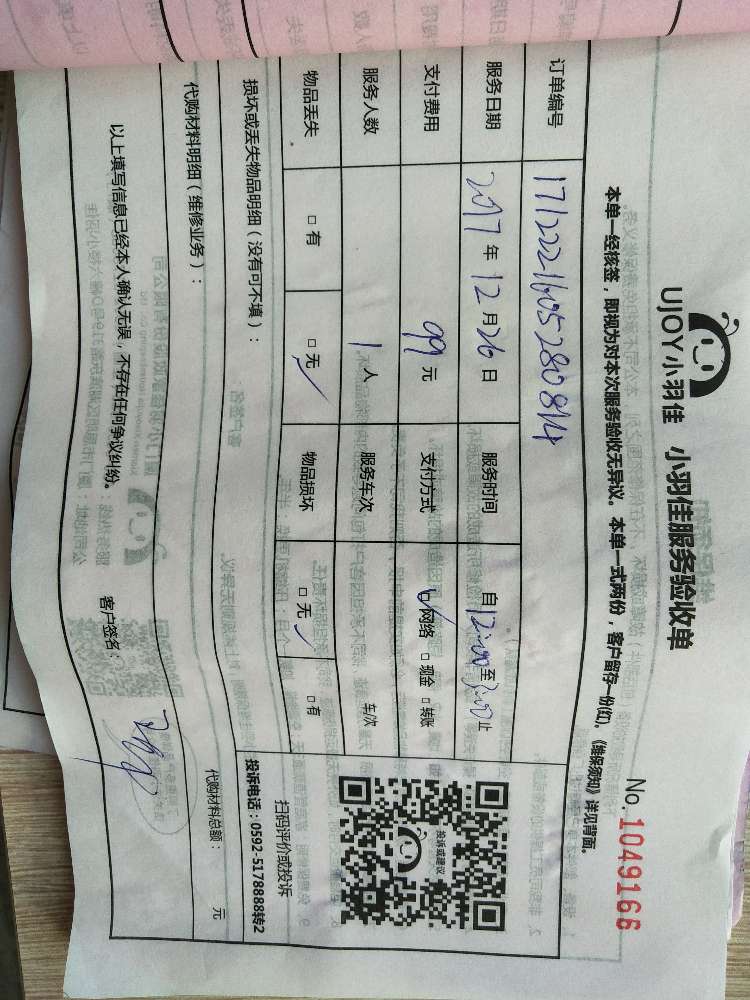 UJOY小羽佳 小羽佳服务验收单
No. 1049166
本单一经核签，即视为对本次服务验收无异议。本单一式两份，客户留存一份(红)。《维保须知》详见背面。
订单编号
服务日期 2017年12月26日 服务时间 自12:00至3:00止
支付费用 99元 支付方式 ☑网络 □现金 □转账
服务人数 1人 服务车次 车/次
物品丢失 □有 □无✓ 物品损坏 □无✓ □有
投诉或建议
扫码评价或投诉
投诉电话：0592-5178888转2
损坏或丢失物品明细（没有可不填）：
代购材料明细（维修业务）： 代购材料总额： 元
以上填写信息已经本人确认无误，不存在任何争议纠纷。 客户签名：